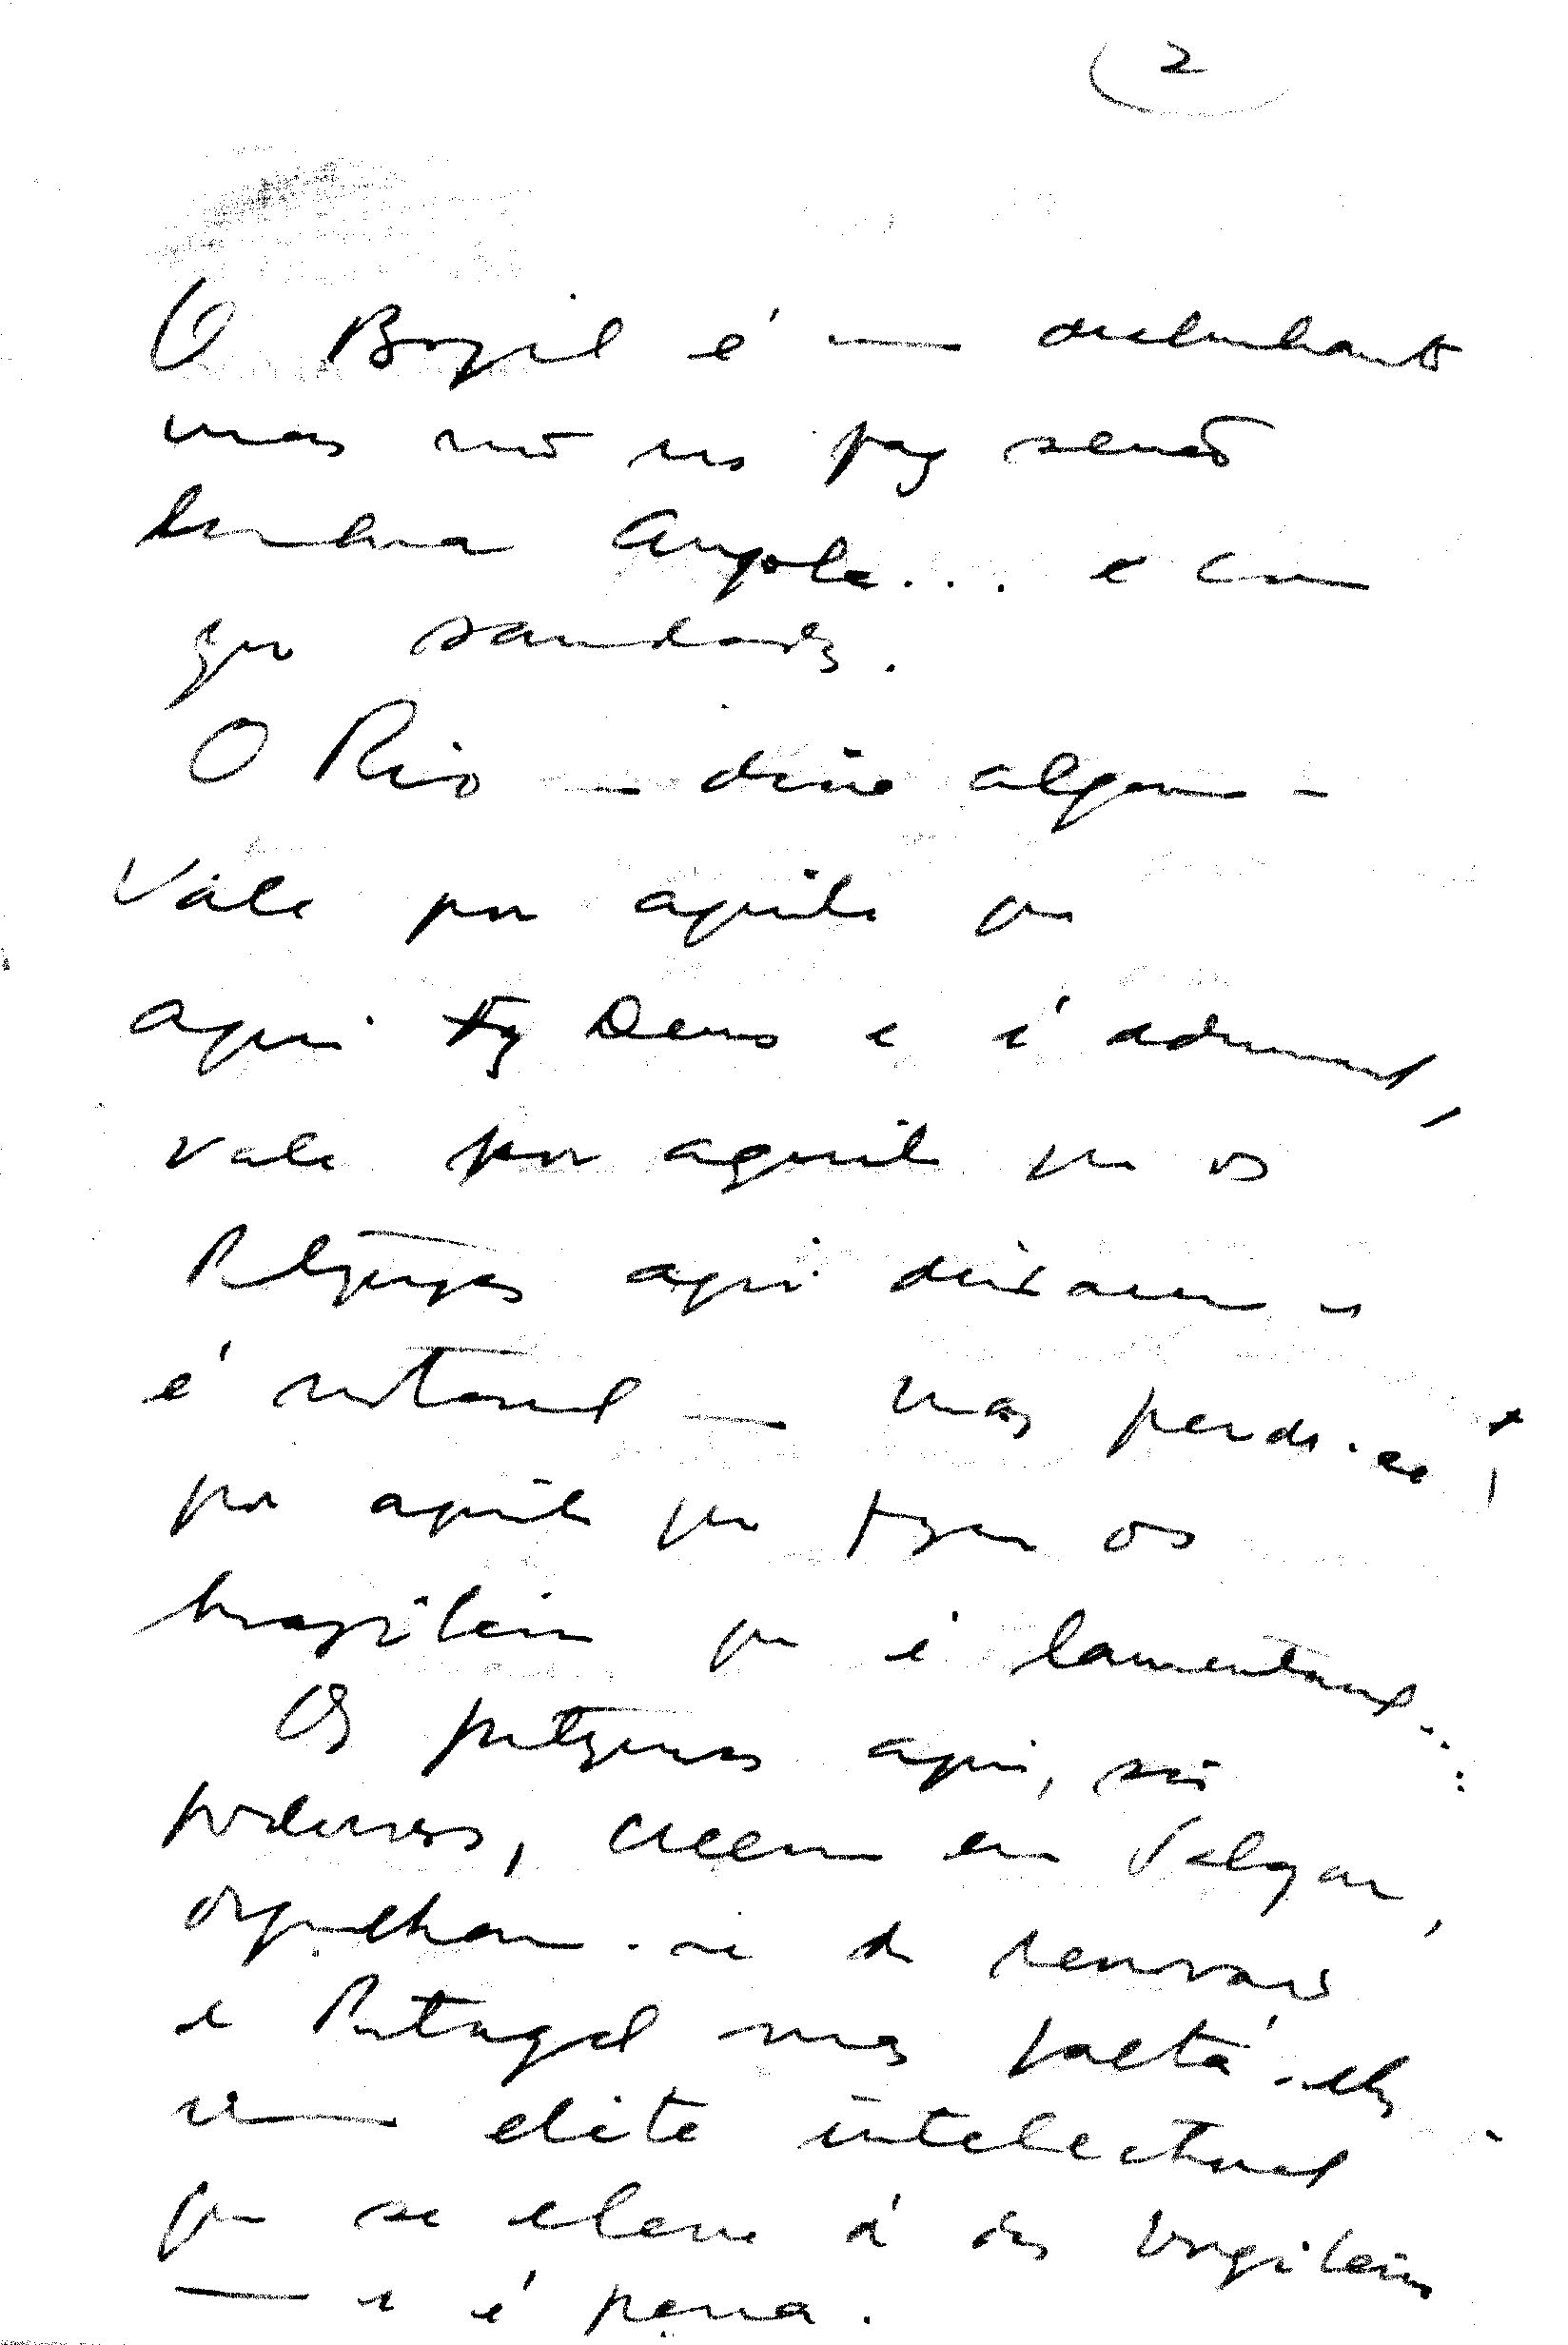 2
O Brazil é um deslumbante
mas não nos faz senão
lembrar Angola... e com
que saudades.
O Rio — disse alguem –
Vale por aquilo que
aqui fez Deus e é admiravel,
vale por aquilo que os
Portugueses aqui deixaram e
é notavel — mas perde-se
por aquilo que fazem os
brazileiros que é lamentavel....
Os portugueses aqui, são
poderosos, creem em Salazar,
orgulham-se de
e Portugal mas falta-lhes
uma elite intelectual
que se eleve á dos brazileiros
— e é pena.